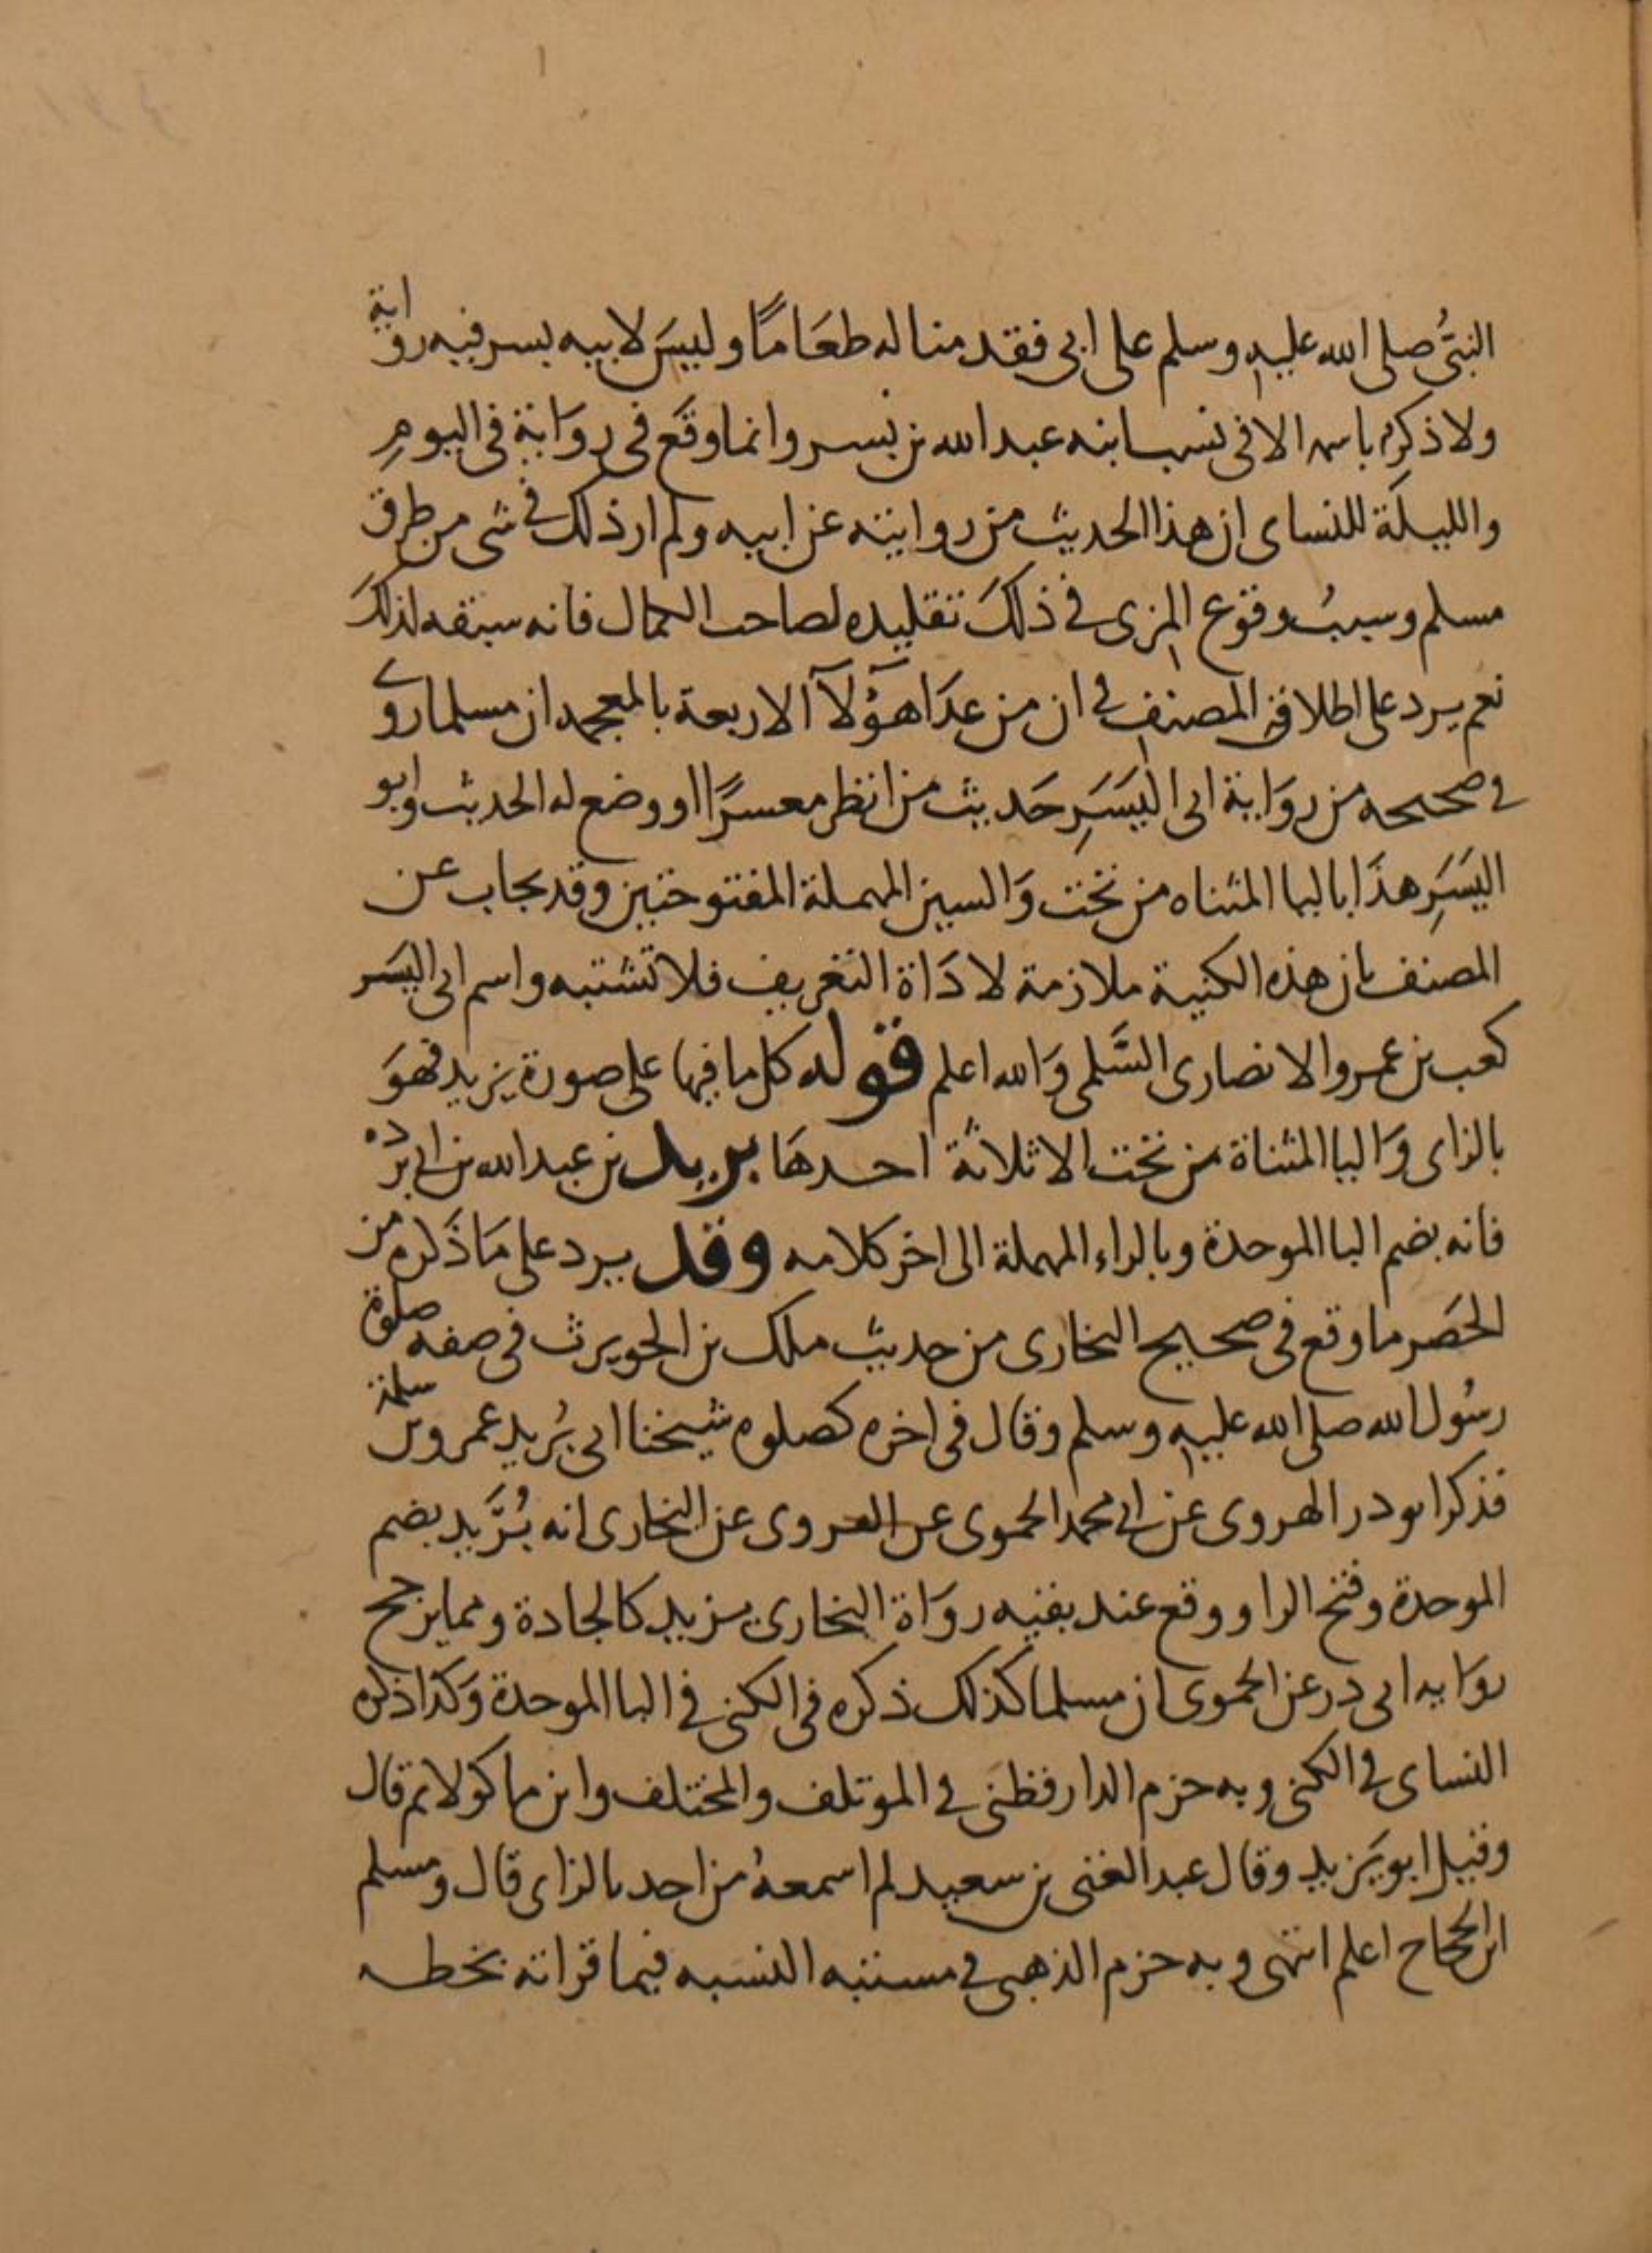 النبيُّ صلى الله عليه وسلم على ابي فقدمنا له طعَامًا وليسَ لابيه بسر فيه رواية
ولا ذكره باسمه الا في نسب ابنه عبد الله بن بسر وانما وقَع في روَاية في اليومِ
والليلَة للنساى ان هذا الحديث من روايته عن ابيه ولم ار ذلك في شى من طرق
مسلم وسببُ وقوع المزى في ذلكَ تقليده لصاحب الكمال فانه سبقه لذلكَ
نعم يرد على اطلاقِ المصنفِ في ان من عدَا هؤلآ الاربعة بالمعجمه ان مسلما روى
في صحيحه من روَاية ابى اليَسَرِ حَديث من انظر معسرًا او وضع له الحديث وابو
اليَسَرِ هذَا باليا المثناه من تحت وَالسين المهملة المفتوحتين وقد يجاب عن
المصنف بان هذه الكنية ملازمة لادَاة التعريف فلا تشتبه واسم ابى اليَسَر
كعب بن عمرو الانصارى السَّلمى وَالله اعلم قوله كل ما فيها على صورة يزيد فهوَ
بالزاى وَاليا المثناة من تحت الا ثلاثة احدهَا بريد بن عبد الله بن ابى برده
فانه بضم البا الموحدة وبالراء المهملة الى اخر كلامه وقد يرد على مَا ذَكره من
الحَصر ما وقع في صحيح البخارى من حديث ملك بن الحويرث في صفه صلوة
رسُول الله صلى الله عليه وسلم وقال في اخره كصلوه شيخنا ابى بُريد عمرو بن سلمة
فذكر ابو در الهروى عن ابى محمد الحموى عن الفروى عن البخارى انه بُرَيد بضم
الموحدة وفتح الرا ووقع عند بقيه روَاة البخارى يزيد كالجادة ومما يرجح
روَايه ابى در عن الحموى ان مسلما كذلك ذكره في الكنى في البا الموحدة وَكذا ذكره
النساى في الكنى وبه جزم الدارقطنى في الموتلف والمختلف وابن ماكولا ثم قال
وقيل ابو يَزيد وقال عبد الغنى بن سعيد لم اسمعهُ من احد بالزاى قال ومسلم
ابن الحجاج اعلم انتهى وبه جزم الذهبى في مشتبه النسبه فيما قراته بخطه